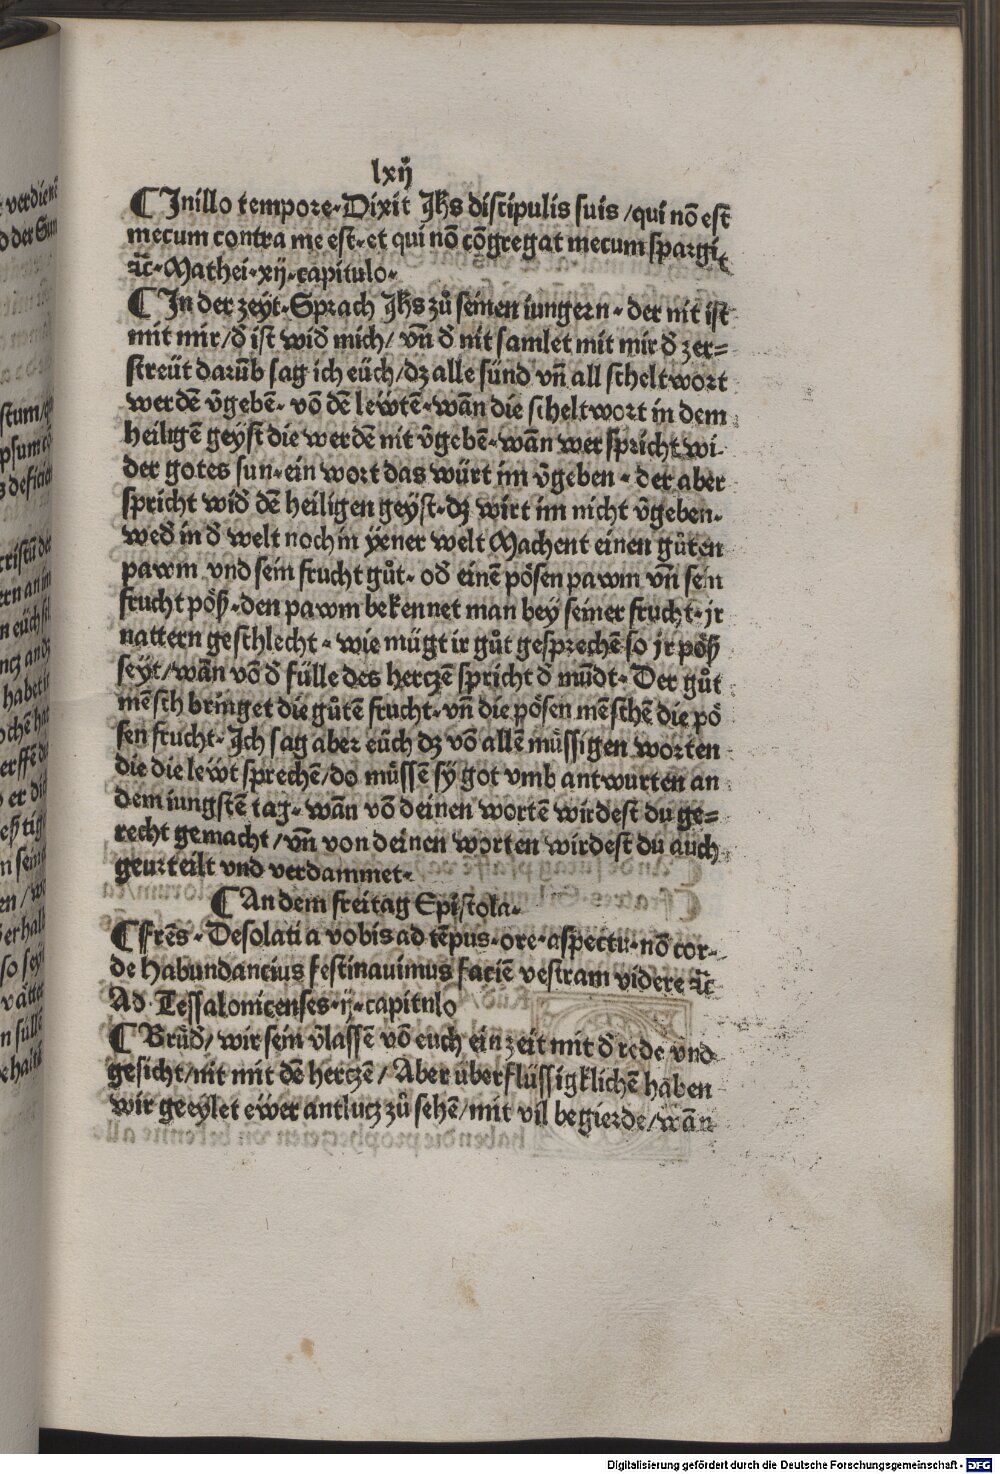 lxij
¶ Inillo tempore. Dixit Jhs discipulis suis / qui nō est
mecum contra me est. et qui nō cōgregat mecum spargit
ꝛc̄. Mathei. xij. capitulo.
¶ In der zeyt. Sprach Jhs zů seinen iungern. der nit ist
mit mir / đ ist wiđ mich / vn̄ đ nit samlet mit mir đ zer=
streüt darūb sag ich eüch / dz alle sünd vn̄ all scheltwort
werdē v̄gebē. vō dē lewtē. wān die scheltwort in dem
heiligē geyst die werdē nit v̄gebē. wān wer spricht wi-
der gotes sun. ein wort das würt im v̄geben. der aber
spricht wiđ dē heiligen geyst. dz wirt im nicht v̄geben.
weđ in đ welt noch in yener welt Machent einen gůten
pawm vnd sein frucht gůt. ođ einē pösen pawm vn̄ sein
frucht pöß. den pawm bekennet man bey seiner frucht. jr
nattern geschlecht. wie mügt ir gůt gesprechē so jr pöß
seyt / wān vō đ fülle des herczē spricht đ mūdt. Der gůt
mēsch bringet die gůtē frucht. vn̄ die pösen mēschē die pö
sen frucht. Ich sag aber eüch dz vō allē müssigen worten
die die lewt sprechē / do müssē sy got vmb antwurten an
dem iungstē tag. wān vō deinen wortē wirdest du ge=
recht gemacht / vn̄ von deinen worten wirdest du auch
geurteilt vnd verdammet.
¶ An dem freitag Epistola.
¶ Frēs. Desolati a vobis ad tēpus. ore. aspectu. nō cor-
de Habundancius festinauimus faciē vestram videre ꝛc̄
Ad. Tessalonicenses. ij. capitulo
¶ Brůđ / wir sein v̄lassē vō euch ein zeit mit đ rede vnd
gesicht / nit mit dē herczē / Aber überflüssigklichē haben
wir geeylet ewer antlucz zů sehē / mit vil begierde / wān
Digitalisierung gefördert durch die Deutsche Forschungsgemeinschaft - DFG